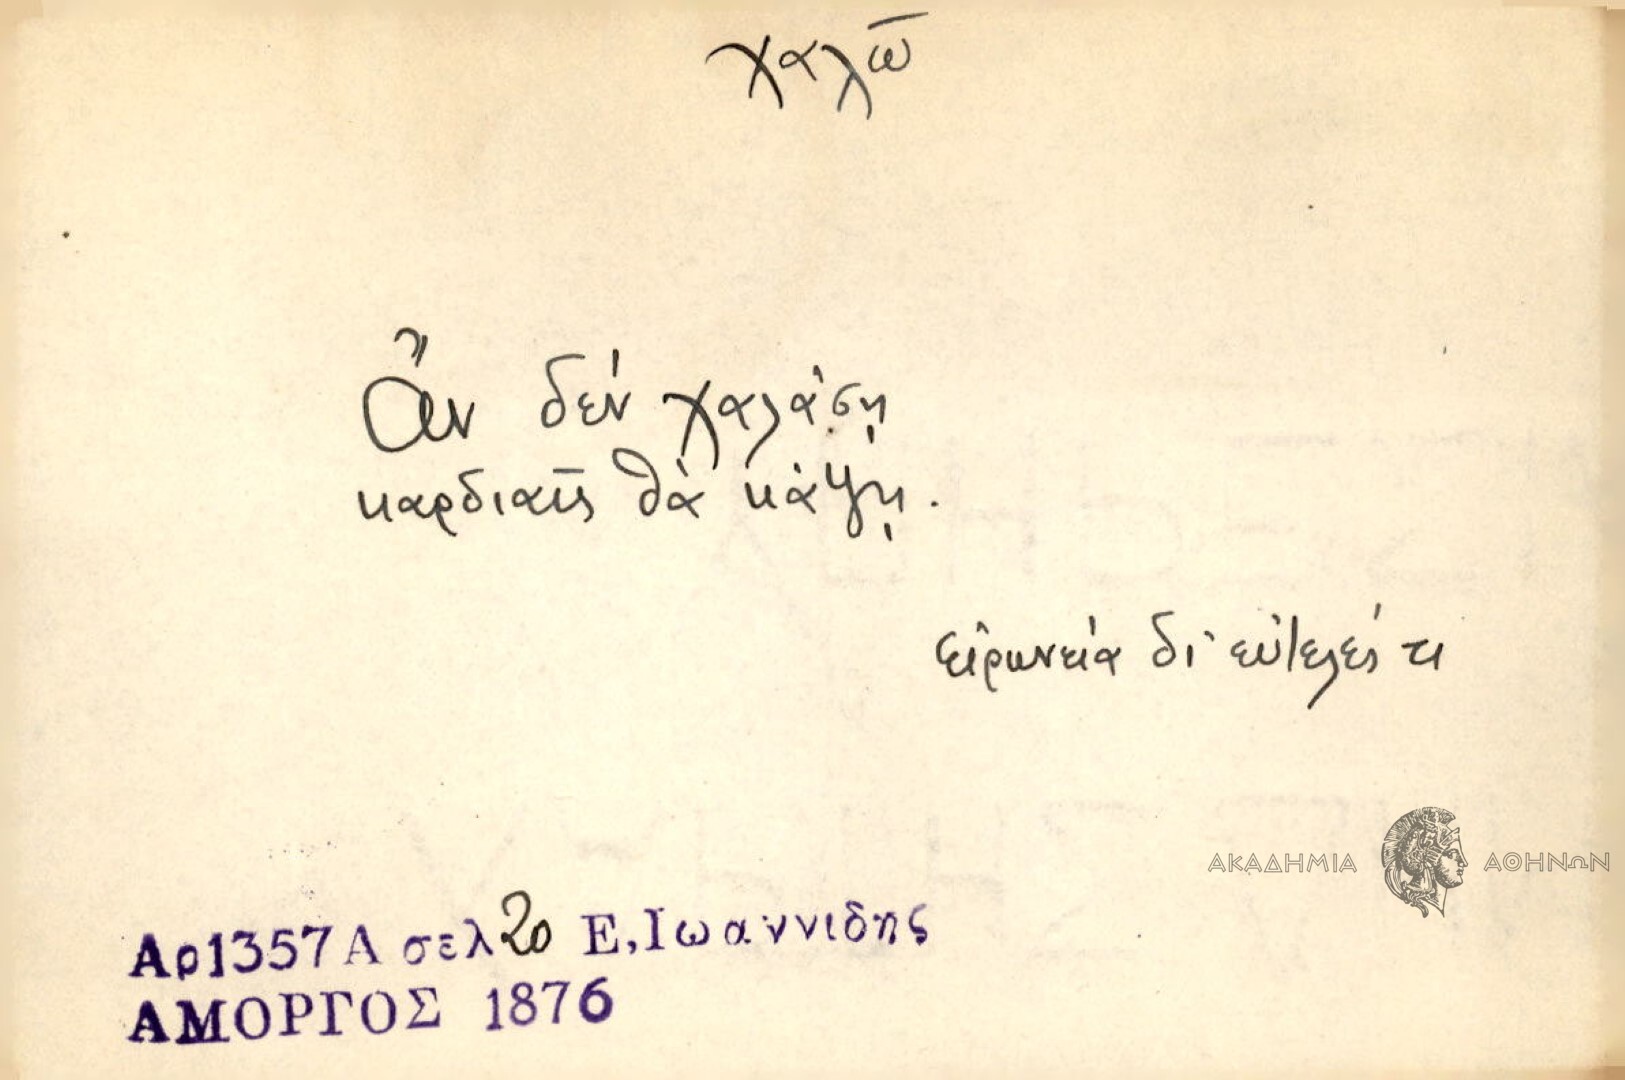 χαλῶ
Ἂν δέν χαλάσῃ
καρδιαῖς θὰ κάψῃ.
εἰρωνεία δι' εὐτελές τι
ΑΚΑΔΗΜΙΑ ΑΘΗΝΩΝ
Αρ1357Α σελ20 Ε,Ιωαννιδης
ΑΜΟΡΓΟΣ 1876